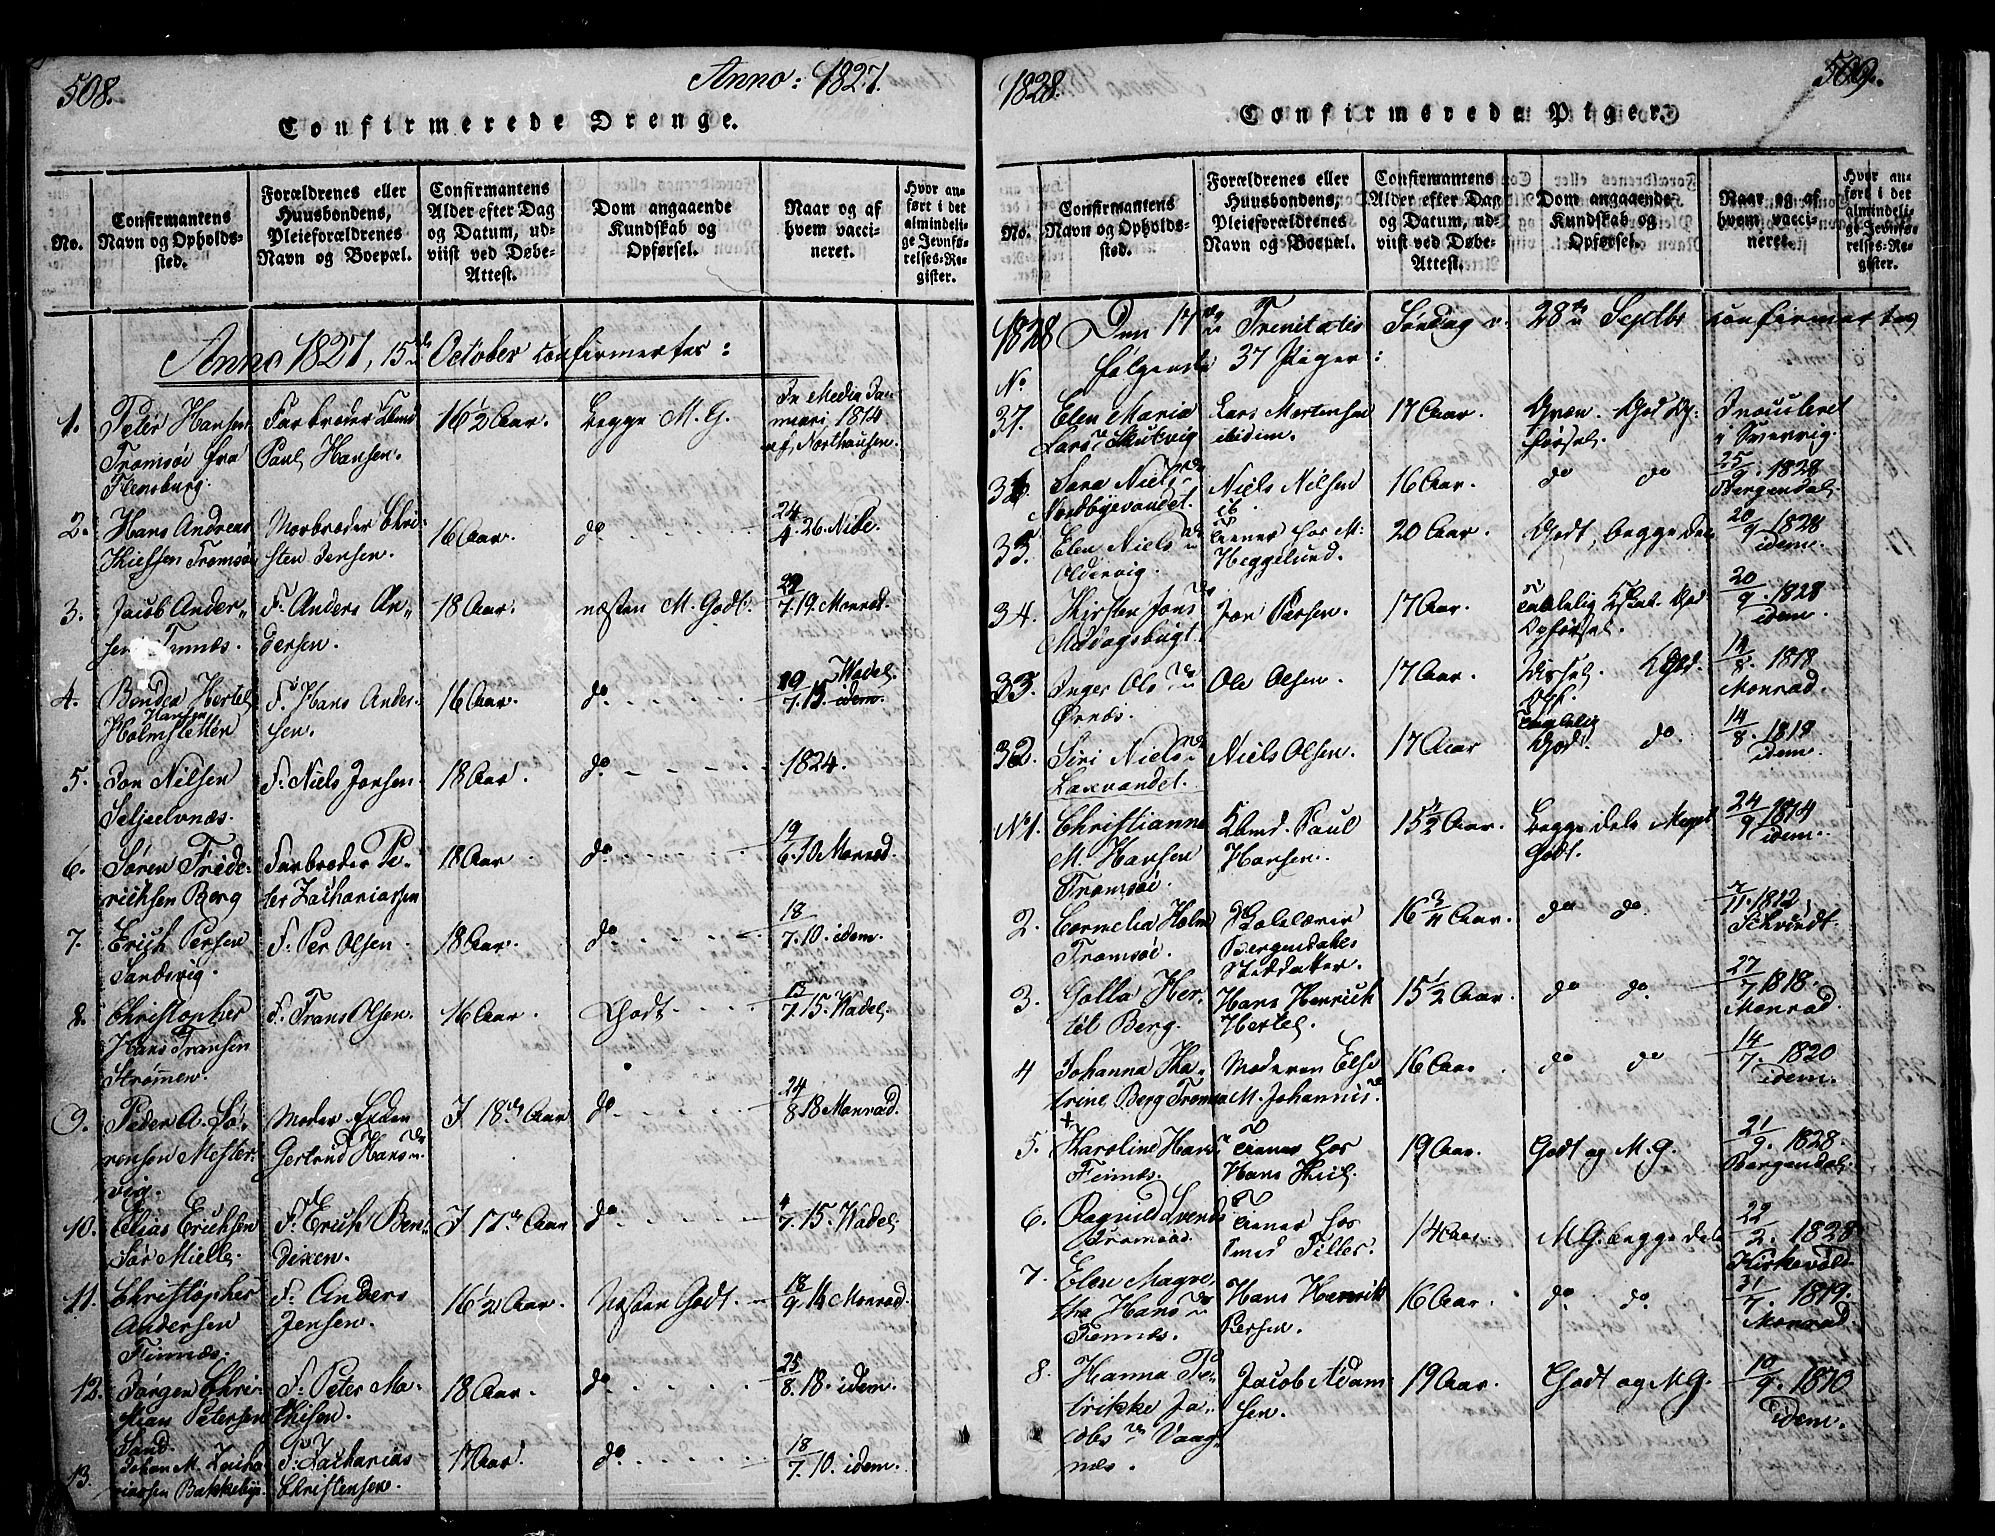 508.
Anno: 1827.
Confirmerede Drenge.
No.
Confirmantens Navn og Opholdssted.
Forældrenes eller Huusbondens, Pleieforældrenes Navn og Boepæl.
Confirmantens Alder efter Dag og Datum, udviist ved Døbe-Attest.
Dom angaaende Kundskab og Opførsel.
Naar og af hvem vaccineret.
Hvor anført i det almindelige Jevnførelses-Register.
Anno 1827, 15de October Confirmertes:
1. Peter Hansen Tromsöe fra Flensburg. Farbroder Paul Hansen. 16 1/2 Aar. Begge M. G. In Media Januari 1814 af Northausen.
2. Hans Andreas Tromsøe Morbroder Christen Jensen. 16 Aar. do 24/4 26 Nibe.
3. Jacob Andersen Finnæs. F. Anders Andersen. 18 Aar. næsten M. Godt. 7.19. Monrad.
4. Hertel Hansen Holmsletten F. Hans Andersen. 16 Aar. do 10/7.15. Wadel.
5. Jon Nilsen Seljeelvnæs. F. Niels Jonsen 18 Aar. do 1824.
6. Søren Friderichsen Berg Farbroder Peter Zachariassen 18 Aar do 19/6.10 Monrad.
7. Erich Persen Sandsvig. F. Per Olsen. 18 Aar. do 18/7.10. idem.
8. Christopher Hans Fransen Strømmen. F. Frans Olsen. 16 Aar. Godt. 13/7.15. Wadel.
9. Peder A. Sørensen Mestervig. Moder Enken Gertrud Hansde. I 18de Aar do 24/8 18 Monrad.
10. Elias Erichsen Sør Mielle F. Erich Bendixen. I 17de Aar do 4/7.15. Wadel.
11. Christopher Andersen Finnæs. F. Anders Jensen. 16 1/2 Aar. Næsten Godt. 18/9.14 Monrad.
12. Jørgen Christian Petersen Sand. F. Peter Mathisen. 18 Aar. do 25/8.18. idem.
13. Johan M. Zachariassen Bakkebye F. Zacharias Christensen. 17 Aar. do 18/7.10. idem.
1828.
509.
Confirmerede Piger.
No.
Confirmantens Navn og Opholdssted.
Forældrenes eller Huusbondens, Pleieforældrenes Navn og Boepæl.
Confirmantens Alder efter Dag og Datum, udviist ved Døbe-Attest.
Dom angaaende Kundskab og Opførsel.
Naar og af hvem vaccineret.
Hvor anført i det almindelige Jevnførelses-Register.
1828 Den 17de Trinitatis Søndag d. 28de Septbr confirmertes
følgende 37 Piger:
No
37. Elen Maria Larsde Skulsvig Lars Mortensen ibidem. 17 Aar. God Opførsel. Inoculeret i
36. Sara Nielsde Nordbyevandet. Niels Nilsen ib. 16 Aar. do do 25/9.1828 Bergendal.
35. Elen Nielsde Oldervig. Tiener hos M: Heggelund. 20 Aar. Godt, begge dele 20/9.1828 idem.
34. Kirsten Jonsde Middagsbugt. Jon Persen. 17 Aar. God Opførsel. 20/9.1828 idem
33. Inger Olsde Ørnæs. Ole Olsen. 17 Aar. God. Opf. 14/8.1818 Monrad.
32. Siri Nielsde Laxvandet. Niels Olsen. 17 Aar Godt do. 14/8.1818 idem
No 1. Christianne M. Hansen Tromsøe. Paul Hansen. 15 1/2 Aar. Begge dele Meget Godt. 24/9 1814 idem.
2. Cornelia Holm Tromsøe. Skolelærer Bergendahls Steddatter. 16 3/4 Aar. do do. 7/11.1812
3. Golla Hertel Berg. Hans Henrich Hertel. 15 1/2 Aar. do do. 27/7 1818. Monrad.
4 Johanna Katrine Berg Tromsøe Moderen Else M. Johannisde 16 Aar do do 14/7.1820 idem.
5. Karoline Hansde Finnæs. Tiener hos Hans 19 Aar. Godt og M. G. 21/9.1828. Bergendal.
6. Ragnild Svendsde Tromsøe. Tiener hos Smed Filler. 14 Aar. M G. begge dele 22/2.1828 Kirkevold
7. Elen Magretha Hansde Finnæs. Hans Henrik Persen. 16 Aar. do do. 31/7.1819. Monrad.
8. Hanna Petrikke Jacobsde Vaagnæs. Jacob Adamsen. 19 Aar. Godt og M G. 10/9.1810 idem.